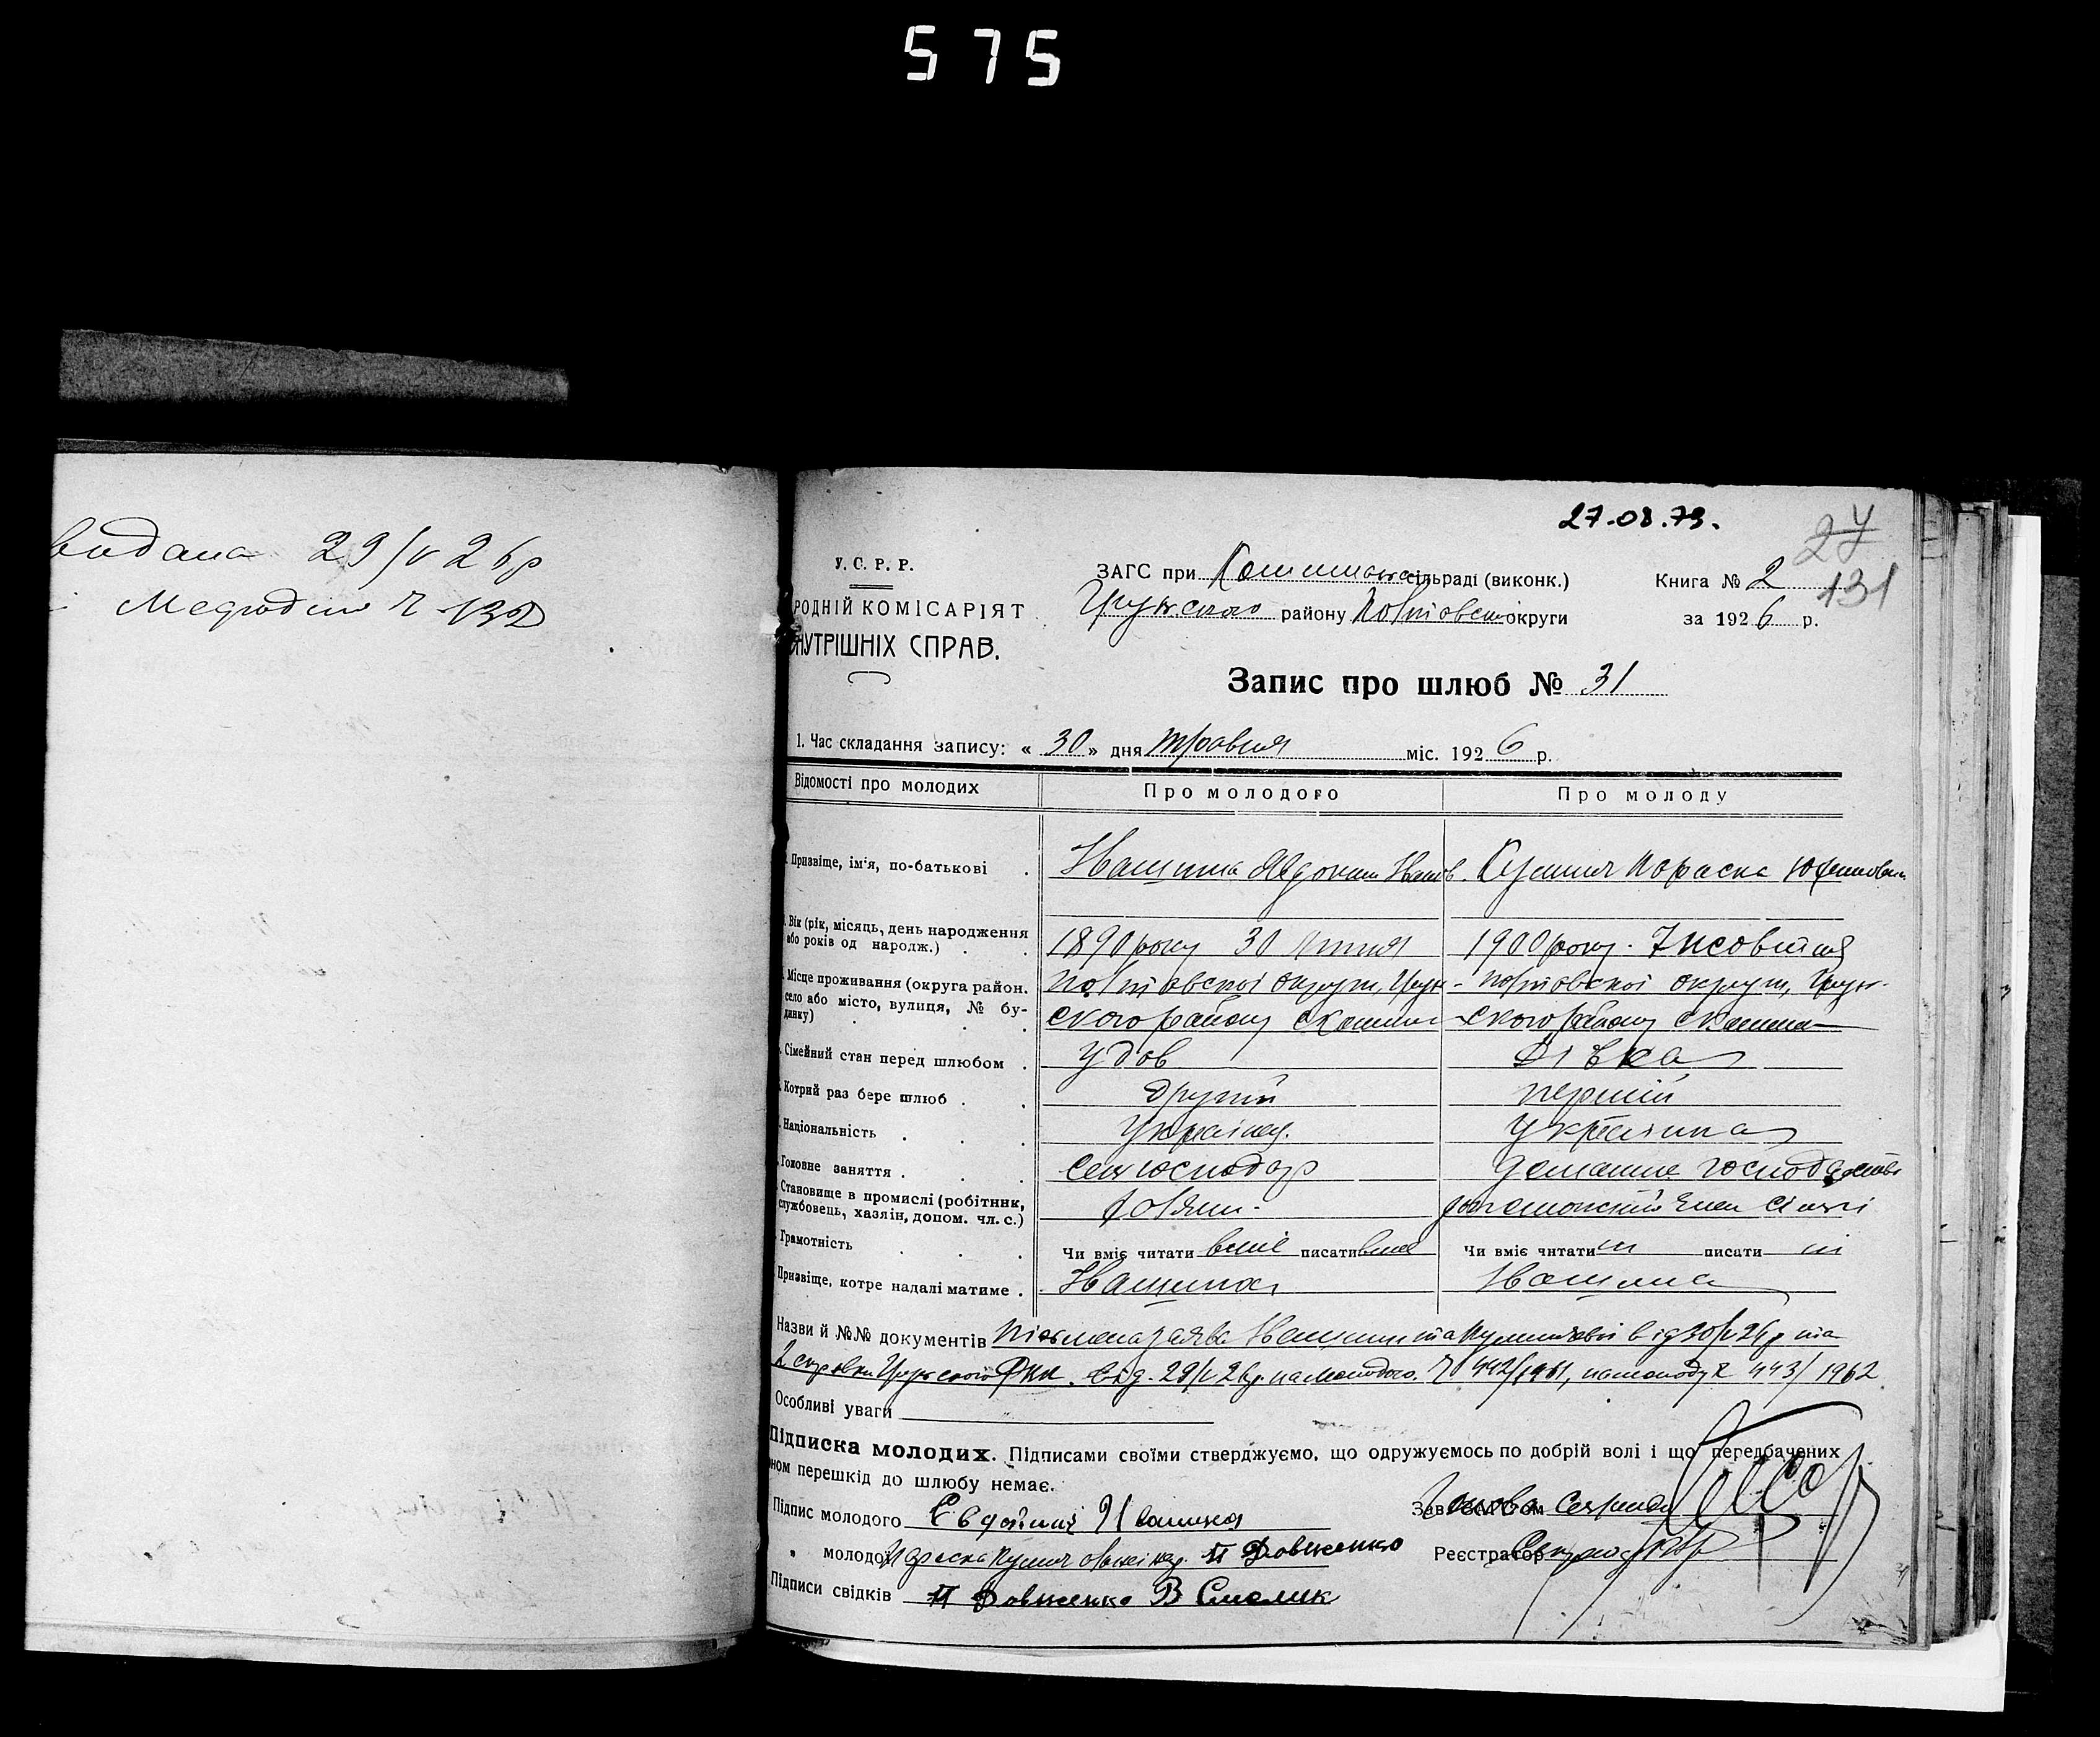 575
видана 29/V 26р
Медогляді Ч 132
27.08.79.
27
131
У. С. Р. Р.
РОДНІЙ КОМІСАРІЯТ
НУТРІШНІХ СПРАВ.
ЗАГС при сільраді (виконк.)
Грунського району Полтавськ округи
Книга № 2
за 1926 р.
Запис про шлюб № 31
1. Час складання запису: « 30 » дня травня міс. 1926 р.
Відомості про молодих
Про молодого
Про молоду
Призвіще, ім'я, по-батькові
Іванина Явдоким Іванов.
Параска
Вік (рік, місяць, день народження
або років од народж.)
1890 року 30 липня
1900 року. 7
Місце проживання (округа район.
село або місто, вулиця, № бу-
динку)
Полтавскої округи, Грун-
ского району
Полтовскої округи, Грун-
ского району
Сімейний стан перед шлюбом
Удов
Дівка
Котрий раз бере шлюб
Другий
перший
Національність
Українец.
Українка
Головне заняття
Селх господар
Домашнє господарство
Становище в промислі (робітник,
службовець, хазяін, допом. чл. с.)
хозяин.
член сімьі
Грамотність
Чи вміє читати вміє писати вміє
Чи вміє читати ні писати ні
Призвіще, котре надалі матиме
Іванина
Іванина
Назви й №№ документів Письмена заява від 30/V 26р та
2 справки Грунського від. 29/V 26р. на молодого Ч 442/1961, на молоду Ч 443/1962
Особливі уваги
Підписка молодих. Підписами своїми стверджуємо, що одружуємось по добрій волі і що передбачених
ном перешкід до шлюбу немає.
Підпис молодого Євдоким Іванина
" молодої Параска П Довженко
Зав. ЗАГСом
Реєстратор
Підписи свідків П Довженко В Смолик